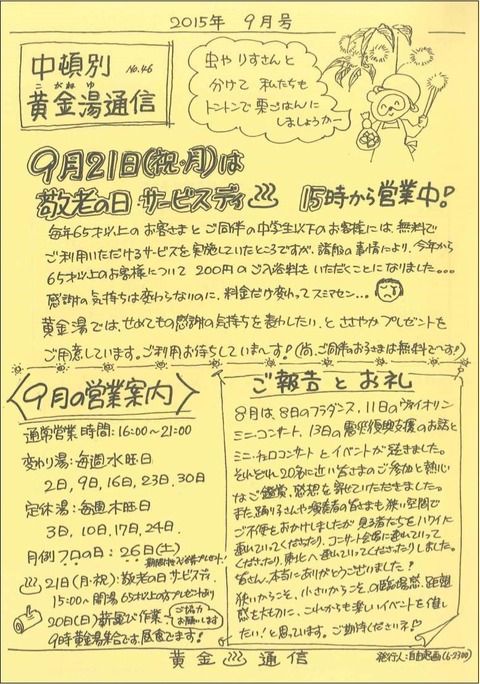 2015年 9月号
中頓別 No.46
こがねゆ
黄金湯通信
虫や りすさんと
分けて 私たちも
トントンで 栗ごはんに
しましょうかー
9月21日(祝・月)は
敬老の日 サービスディ 15時から営業中!
毎年65才以上のお客さまと ご同伴の中学生以下のお客様には、無料で
ご利用いただけるサービスを実施していたところですが、諸般の事情により、今年から
65才以上のお客様について 200円のご入浴料を いただくことになりました。。。
感謝の気持ちは変わらないのに、料金だけ変わって スミマセン…。
黄金湯では、せめてもの感謝の気持ちを表わしたい、と ささやかプレゼントを
ご用意しています。ご利用お待ちしていまーす!(尚、ご同伴のお子さまは無料でーす!)
9月の営業案内
通常営業時間:16:00〜21:00
変わり湯:毎週水曜日
2日,9日,16日,23日,30日
定休湯:毎週木曜日
3日,10日,17日,24日.
月例フロの日:26日(土)
21日(月・祝):敬老の日 サービスディ
15:00〜開湯 65才以上の方プレゼントあり
20日(日)薪運び作業
ご協力
お願いします
9時黄金湯集合です。昼食でます!
ご報告とお礼
8月は、8日のフラダンス、11日のヴァイオリン
ミニ・コンサート、13日の震災復興支援のお話と
ミニ・チェロコンサート とイベントが続きました。
それぞれ 20名に近い皆さまのご参加と熱心
なご鑑賞、感想を寄せていただきました。
また踊り子さんや演奏者の皆さまも狭い空間で
ご不便をおかけしましたが 見る者たちをハワイに
連れていってくださったり、コンサート会場に連れていって
くださったり、東北へ連れていってくださったりしました。
皆さん、本当にありがとうございました!
狭いからこそ、小さいからこその臨場感、距離
感を大切に、これからも楽しいイベントを催し
たい!と思っています。ご期待くださいネ♡
黄金 通信
発行人:自由忠画(6-2300)